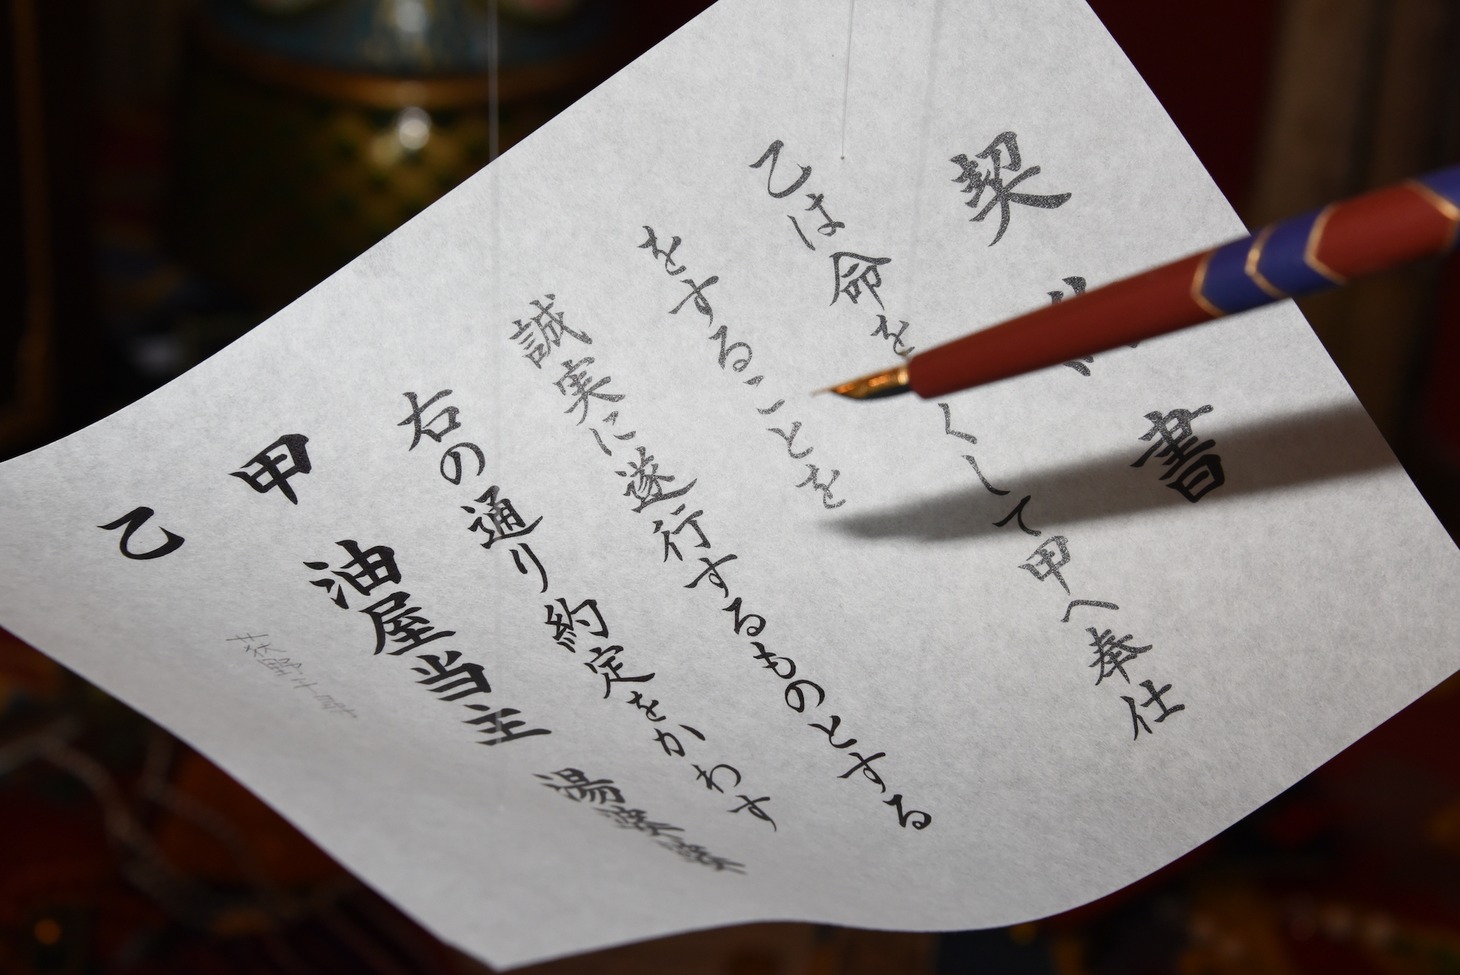 契 書
乙は命を くして甲へ奉仕
をすることを
誠実に遂行するものとする
右の通り約定をかわす
甲 油屋当主 湯婆婆
乙 荻野千尋